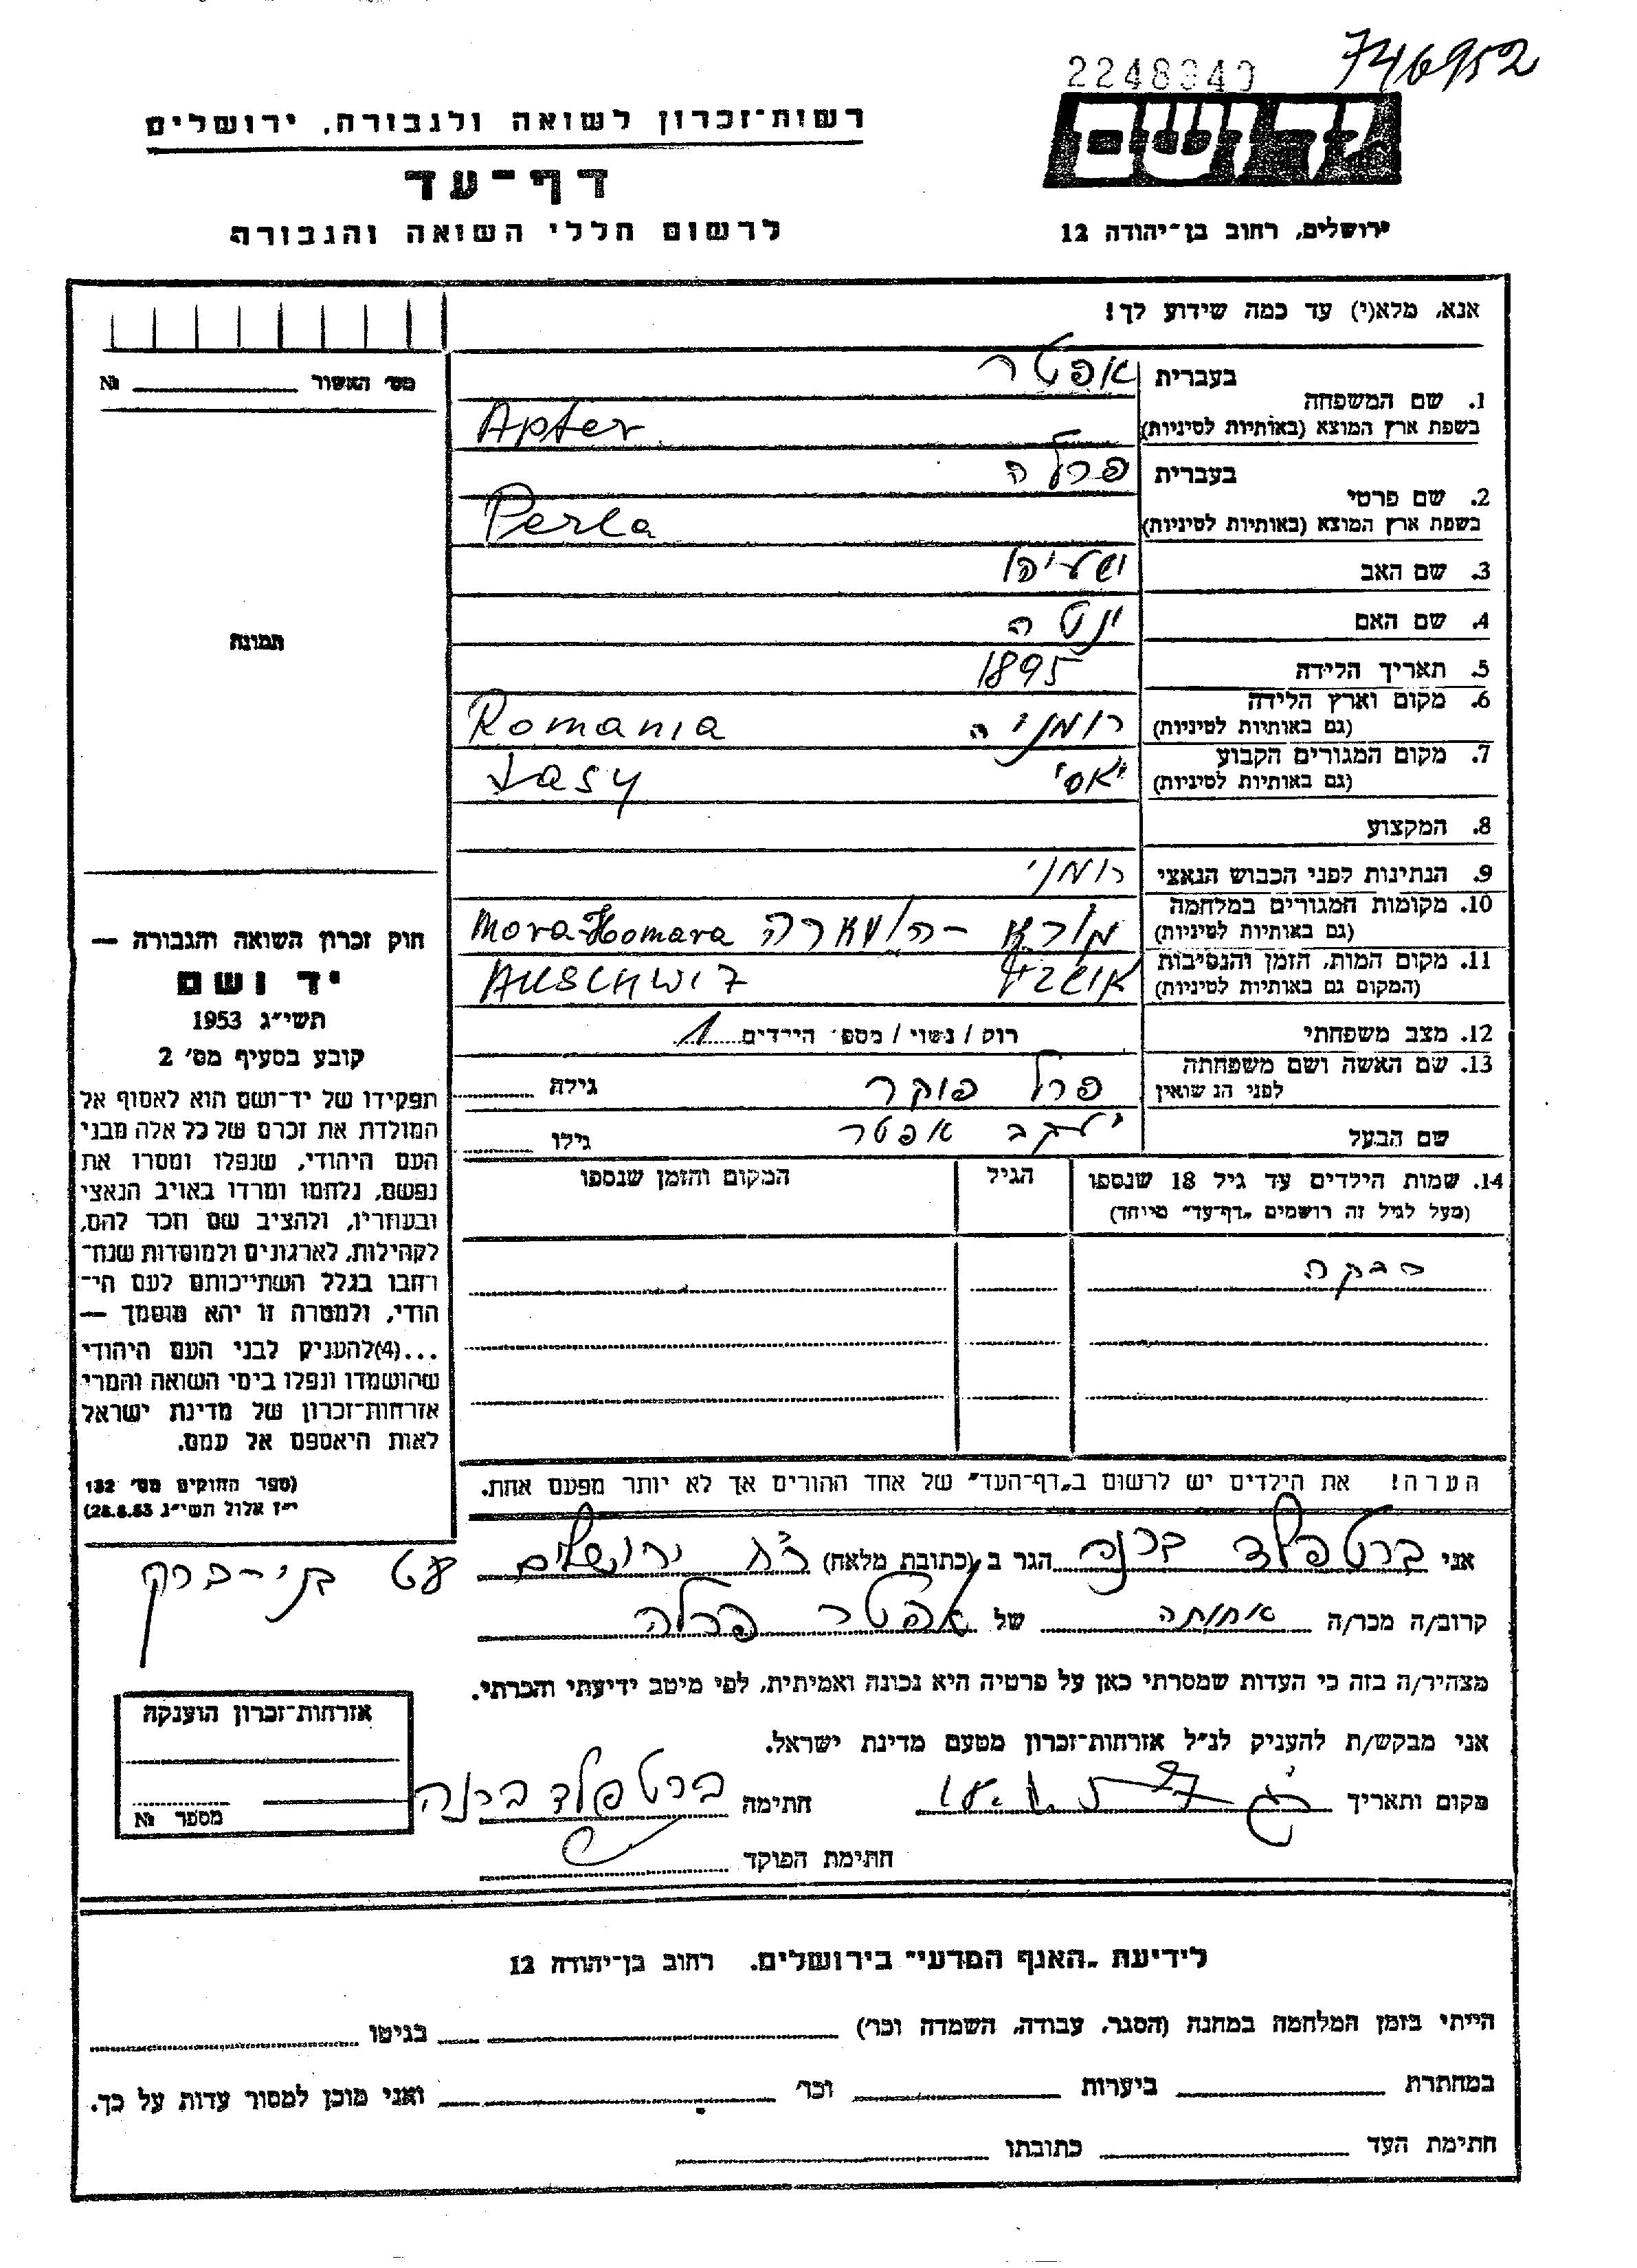 746952
2248940
יד ושם
ירושלים, רחוב בן-יהודה 12
רשות-זכרון לשואה ולגבורה, ירושלים
דף-עד
לרשום חללי השואה והגבורה
אנא, מלא(י) עד כמה שידוע לך!
בעברית אפטר
1. שם המשפחה
בשפת ארץ המוצא (באותיות לטיניות) Apter
בעברית פרלה
2. שם פרטי
בשפת ארץ המוצא (באותיות לטיניות) Perla
3. שם האב ישעיהו
4. שם האם ינטה
5. תאריך הלידה 1895
6. מקום וארץ הלידה
(גם באותיות לטיניות) רומניה Romania
7. מקום המגורים הקבוע
(גם באותיות לטיניות) יאסי Jasy
8. המקצוע
9. הנתינות לפני הכבוש הנאצי רומני
10. מקומות המגורים במלחמה
(גם באותיות לטיניות) מורא-הומרה Mora-Homara
11. מקום המות, הזמן והנסיבות
(המקום גם באותיות לטיניות) אושביץ Auschwiz
12. מצב משפחתי רוק / נשוי / מספר הילדים 1
13. שם האשה ושם משפחתה
לפני הנשואין פרל פוקר גילה
שם הבעל יעקב אפטר גילו
14. שמות הילדים עד גיל 18 שנספו הגיל המקום והזמן שנספו
(מעל לגיל זה רושמים „דף-עד" מיוחד)
רבקה
הערה! את הילדים יש לרשום ב„דף-העד" של אחד ההורים אך לא יותר מפעם אחת.
מס' האשור №
תמונה
חוק זכרון השואה והגבורה —
יד ושם
תשי"ג 1953
קובע בסעיף מס' 2
תפקידו של יד-ושם הוא לאסוף אל
המולדת את זכרם של כל אלה מבני
העם היהודי, שנפלו ומסרו את
נפשם, נלחמו ומרדו באויב הנאצי
ובעוזריו, ולהציב שם וזכר להם,
לקהילות, לארגונים ולמוסדות שנח-
רבו בגלל השתייכותם לעם הי-
הודי, ולמטרה זו יהא מוסמך —
...(4)להעניק לבני העם היהודי
שהושמדו ונפלו בימי השואה והמרי
אזרחות-זכרון של מדינת ישראל
לאות היאספם אל עמם.
(ספר החוקים מס' 132
י"ז אלול תשי"ג 28.8.53)
אני ברטפלד ברנה הגר ב (כתובת מלאה) רח ירושלים עט בני-ברק
קרוב/ה מכר/ה אחותה של אפטר פרלה
מצהיר/ה בזה כי העדות שמסרתי כאן על פרטיה היא נכונה ואמיתית, לפי מיטב ידיעתי והכרתי.
אני מבקש/ת להעניק לנ"ל אזרחות-זכרון מטעם מדינת ישראל.
מקום ותאריך חתימה ברטפלד ברנה
חתימת הפוקד
אזרחות-זכרון הוענקה
מספר №
לידיעת „האגף המדעי" בירושלים. רחוב בן-יהודה 12
הייתי בזמן המלחמה במחנה (הסגר, עבודה, השמדה וכו') בגיטו
במחתרת ביערות וכו' ואני מוכן למסור עדות על כך.
חתימת העד כתובתו